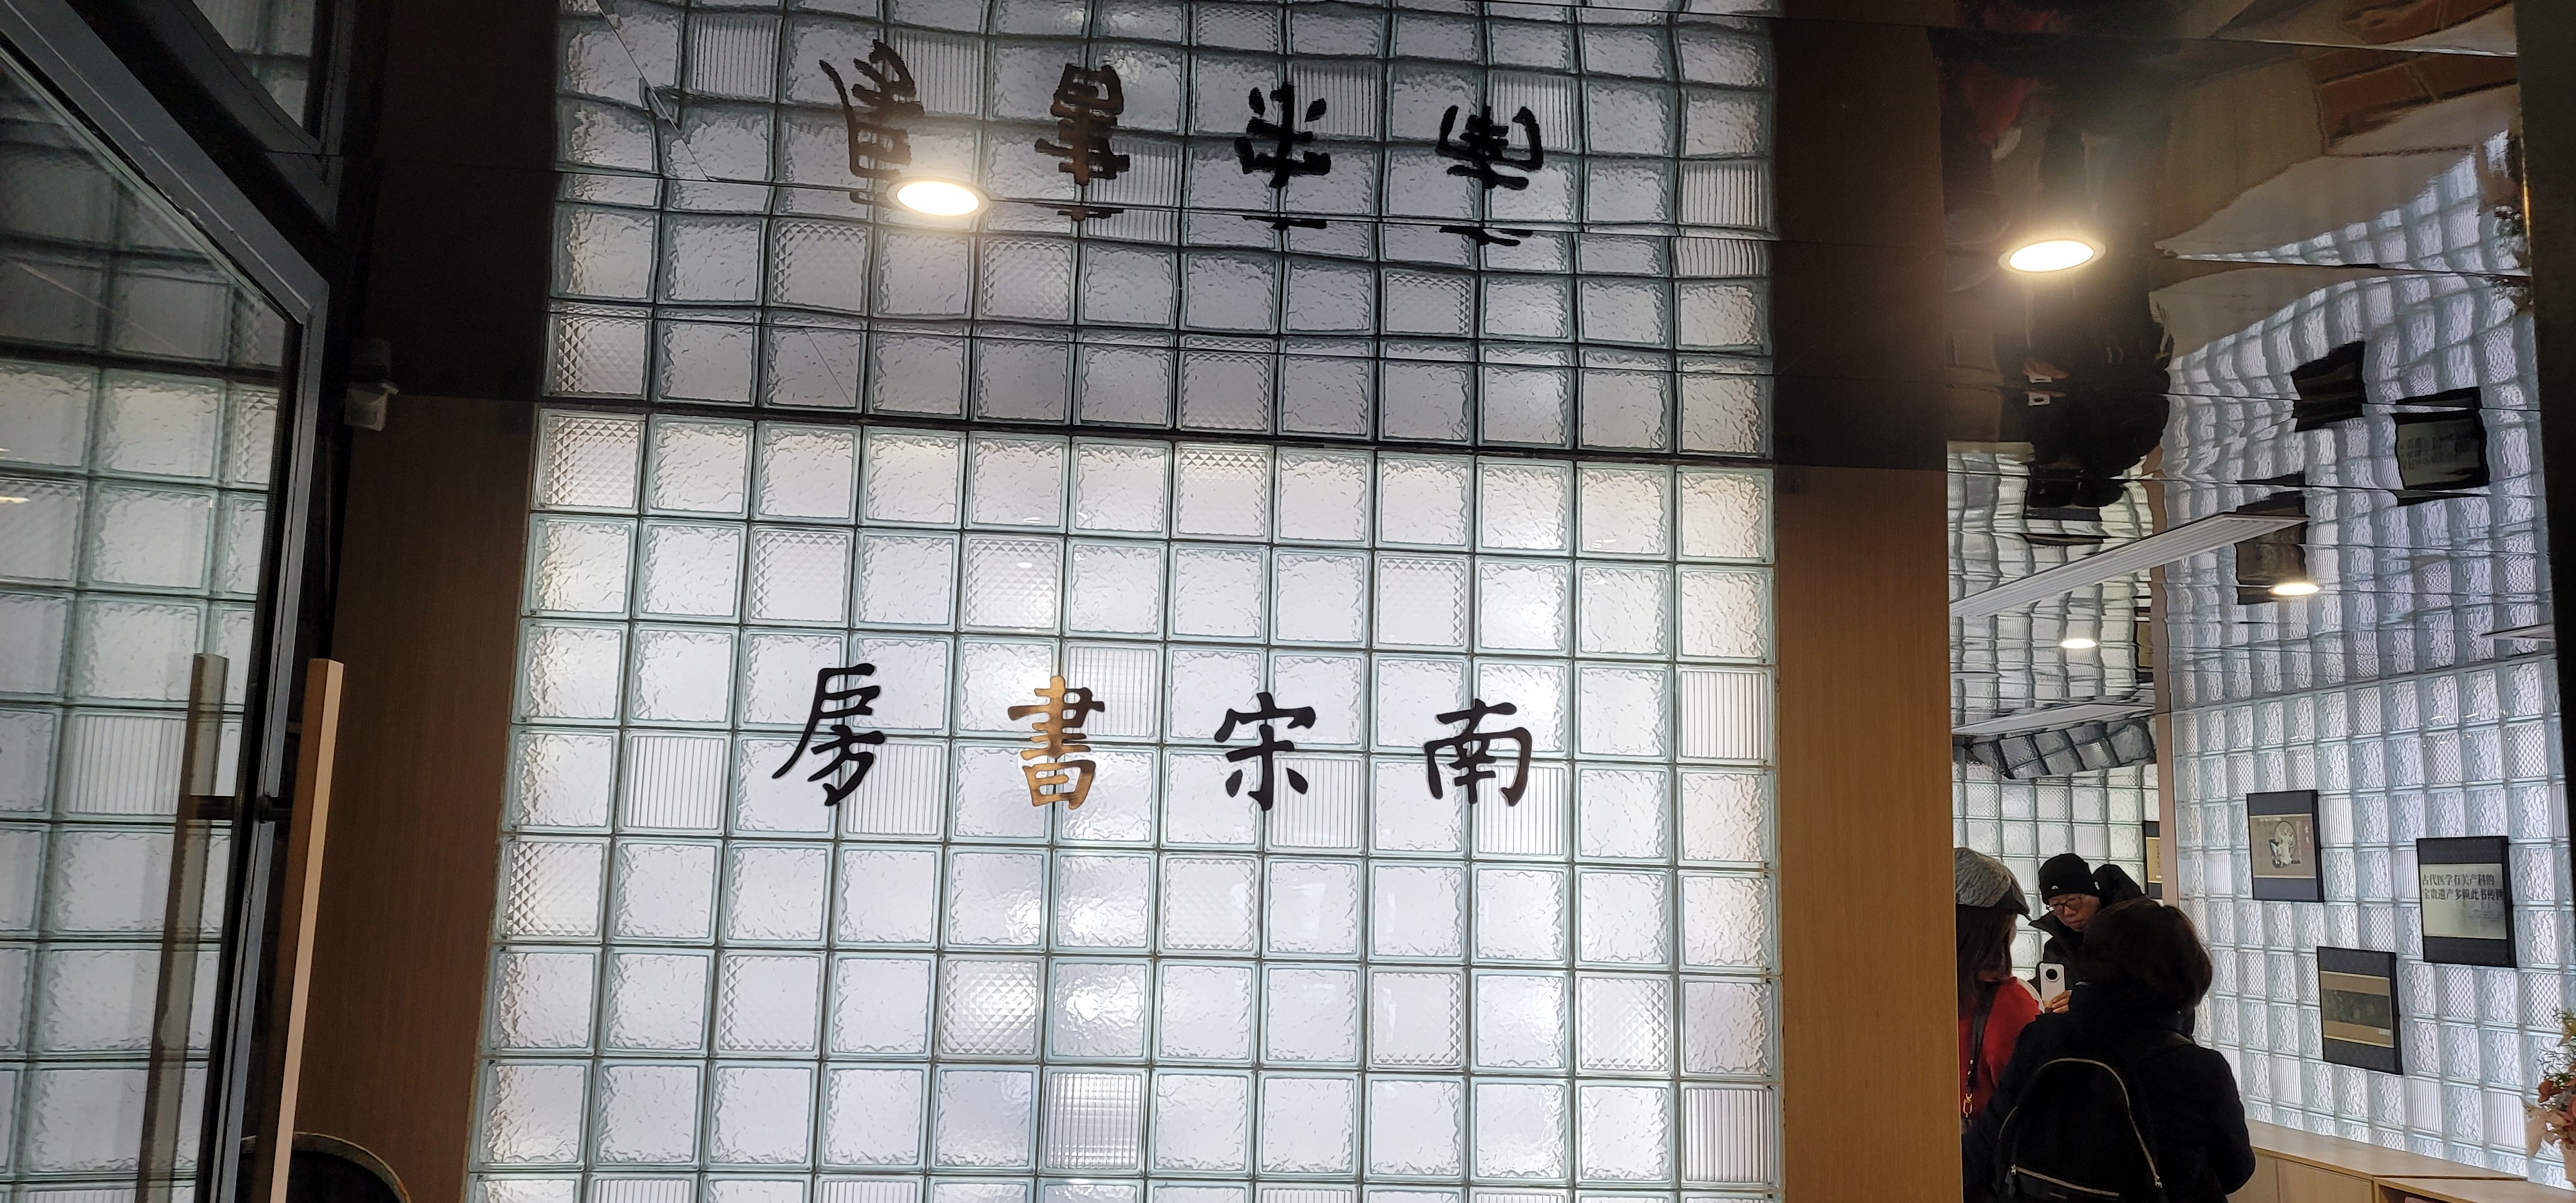 南宋書房
古代医学有关产科的
宝贵遗产多赖此书传世